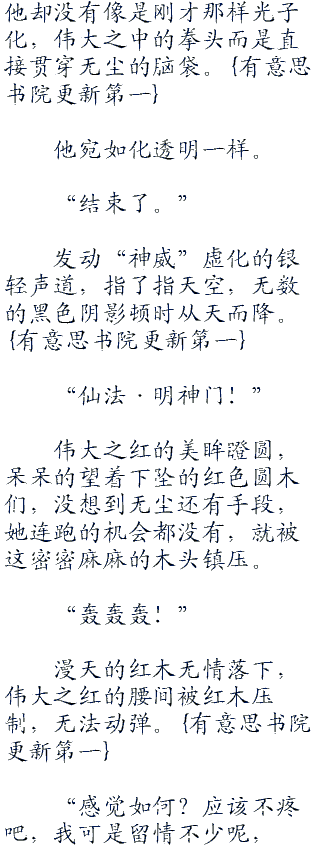 他却没有像是刚才那样光子
化，伟大之中的拳头而是直
接贯穿无尘的脑袋。{有意思
书院更新第一}
他宛如化透明一样。
“结束了。”
发动“神威”虚化的银
轻声道，指了指天空，无数
的黑色阴影顿时从天而降。
{有意思书院更新第一}
“仙法·明神门！”
伟大之红的美眸瞪圆，
呆呆的望着下坠的红色圆木
们，没想到无尘还有手段，
她连跑的机会都没有，就被
这密密麻麻的木头镇压。
“轰轰轰！”
漫天的红木无情落下，
伟大之红的腰间被红木压
制，无法动弹。{有意思书院
更新第一}
“感觉如何？应该不疼
吧，我可是留情不少呢，